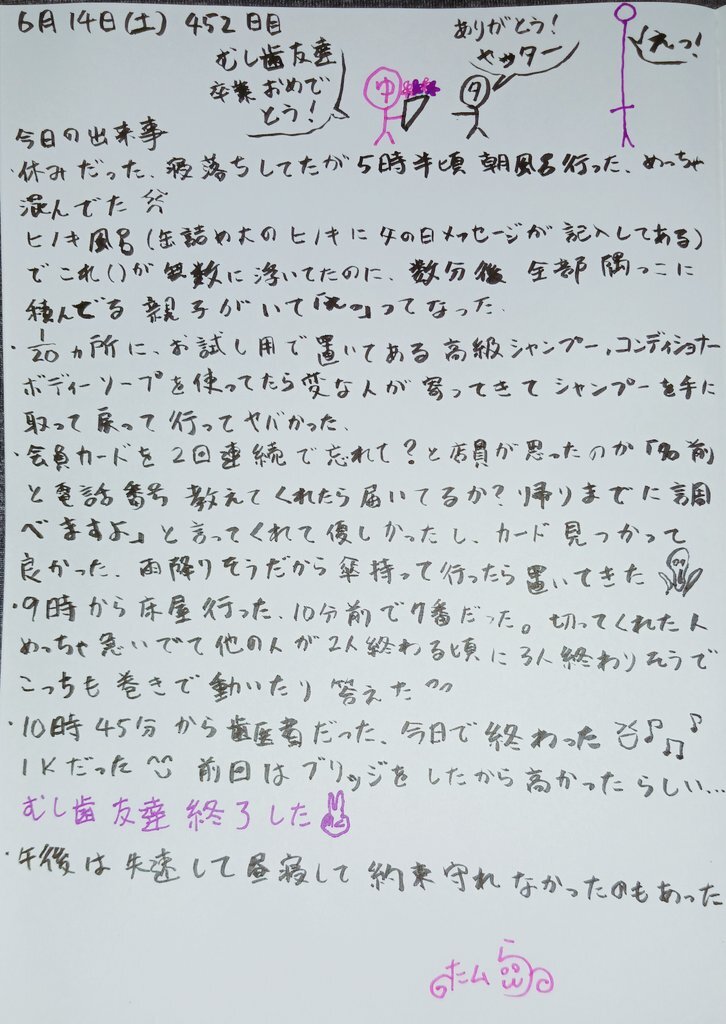 6月14日(土) 452日目
むし歯友達
卒業おめで
とう!
ゆ
ありがとう!
ヤッター
タ
えっ!
今日の出来事
・休みだった、寝落ちしてたが5時半頃朝風呂行った、めっちゃ
混んでた
ヒノキ風呂(缶詰め大のヒノキに父の日メッセージが記入してある)
でこれ()が無数に浮いてたのに、数分後全部隅っこに
積んでる親子がいて「えっ」ってなった、
・1/20ヵ所に、お試し用で置いてある高級シャンプー、コンディショナー
ボディーソープを使ってたら変な人が寄ってきてシャンプーを手に
取って戻って行ってヤバかった、
・会員カードを2回連続で忘れて?と店員が思ったのか「名前
と電話番号教えてくれたら届いてるか?帰りまでに調
べますよ」と言ってくれて優しかったし、カード見つかって
良かった、雨降りそうだから傘持って行ったら置いてきた
・9時から床屋行った、10分前で7番だった。切ってくれた人
めっちゃ急いでて他の人が2人終わる頃に3人終わりそうで
こっちも巻きで動いたり答えた
・10時45分から歯医者だった、今日で終わった
1Kだった 前回はブリッジをしたから高かったらしい…
むし歯友達終了した
・午後は失速して昼寝して約束守れなかったのもあった
たム